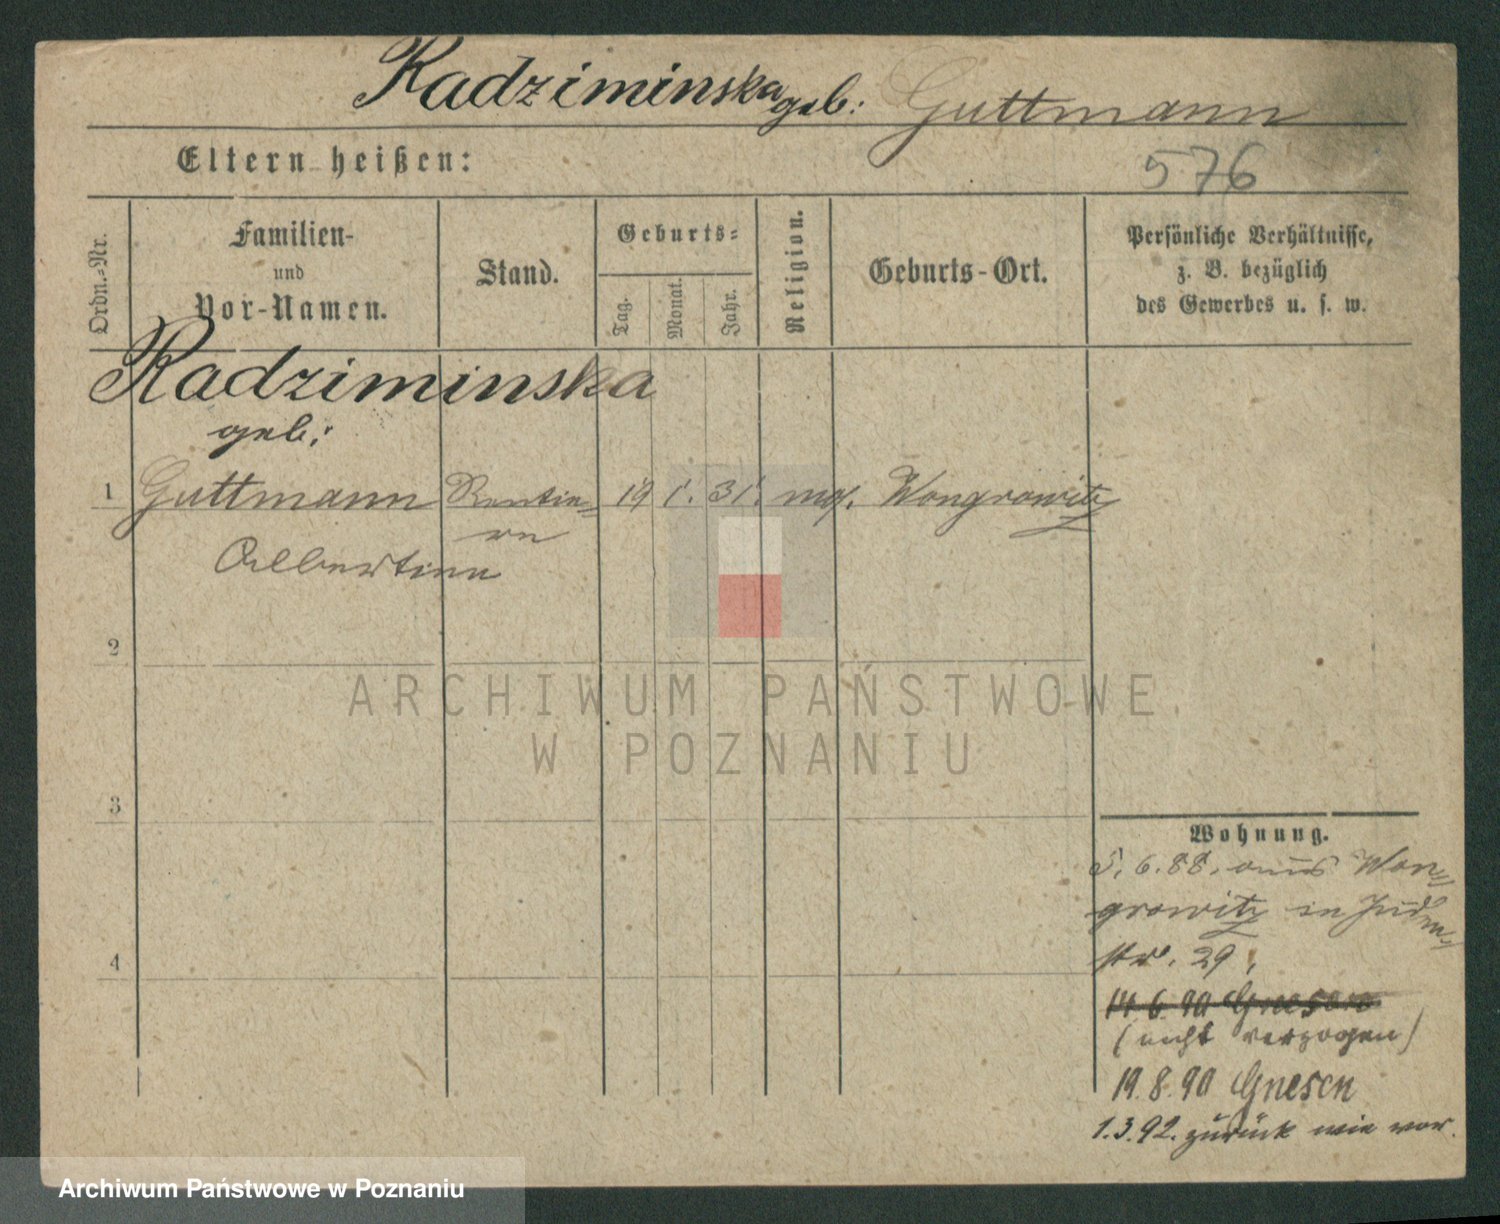 Radziminska geb: Guttmann
Eltern heißen:
576
Ordn.-Nr.
Familien-
und
Vor-Namen.
Stand.
Geburts-
Tag.
Monat.
Jahr.
Religion.
Geburts-Ort.
Persönliche Verhältnisse,
z. B. bezüglich
des Gewerbes u. s. w.
Radziminska
geb:
1 Guttmann Rentie= 19 1. 31. mos. Wongrowitz
re
Albertine
2
3
4
ARCHIWUM PAŃSTWOWE
W POZNANIU
Wohnung.
5. 6. 88. aus Won=
growitz in Juden=
str. 29.
14. 6. 90 Gnesen
(nicht verzogen)
19. 8. 90 Gnesen
1. 3. 92. zurück wie vor.
Archiwum Państwowe w Poznaniu